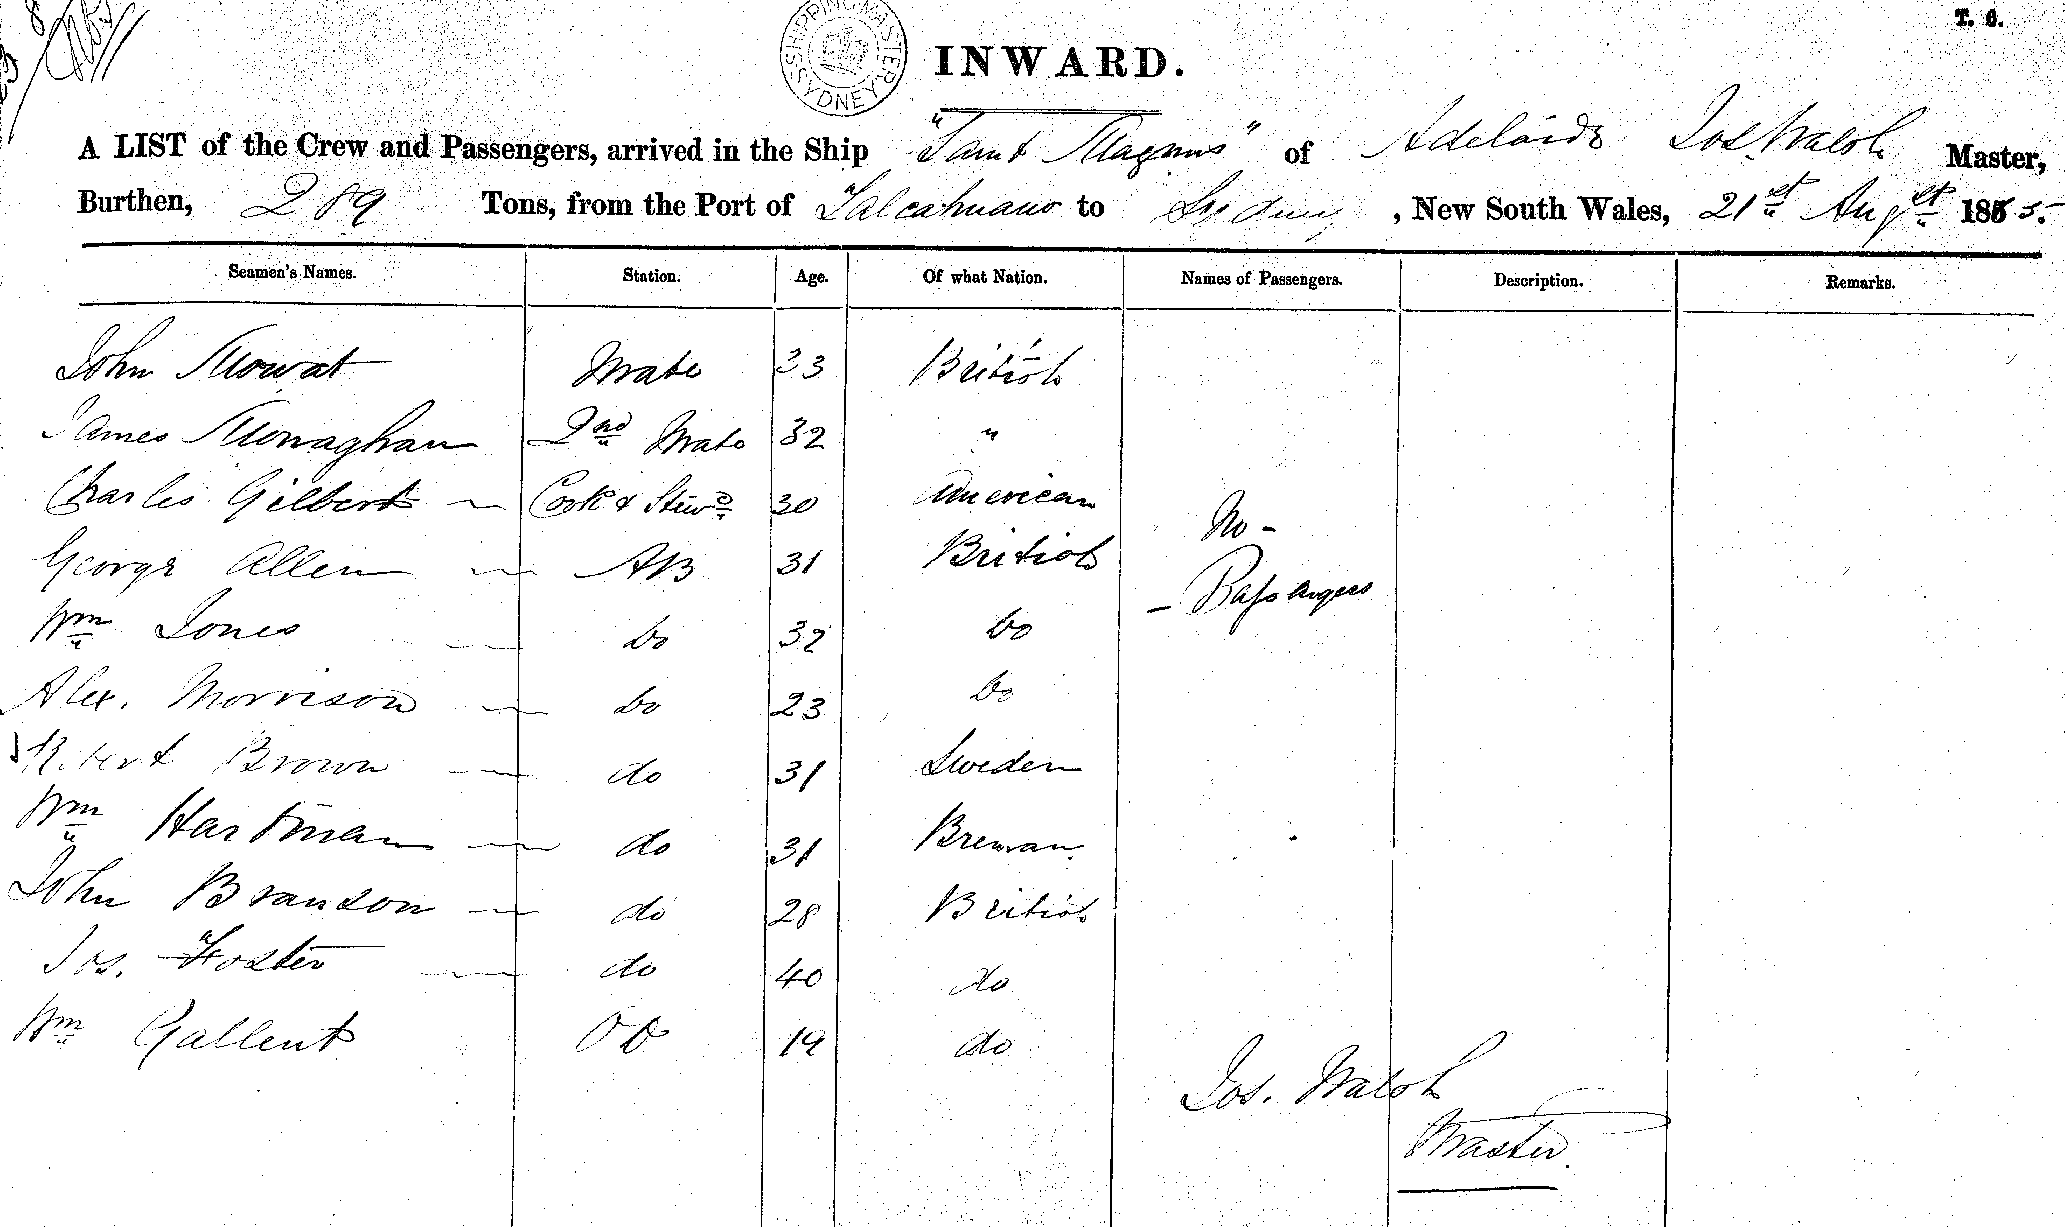 T. 6.
SHIPPING MASTER SYDNEY
INWARD.
A LIST of the Crew and Passengers, arrived in the Ship "Saint Magnus" of Adelaide Jos. Walsh Master,
Burthen, 289 Tons, from the Port of Talcahuano to Sydney, New South Wales, 21st Augst 1865.
Seamen's Names. Station. Age. Of what Nation. Names of Passengers. Description. Remarks.
John Mowat Mate 33 British
James Monaghan 2nd Mate 32 "
Charles Gilbert Cook & Stewd 30 American
No -
George Allen AB 31 British
- Passangers
Wm Jones Do 32 Do
Alex. Morrison Do 23 Do
Robert Brown do 31 Sweden
Wm Hartman do 31 Breman
John Branson do 28 British
Jos. Foster do 40 do
Wm Gallent OD 19 do
Jos. Walsh
Master.